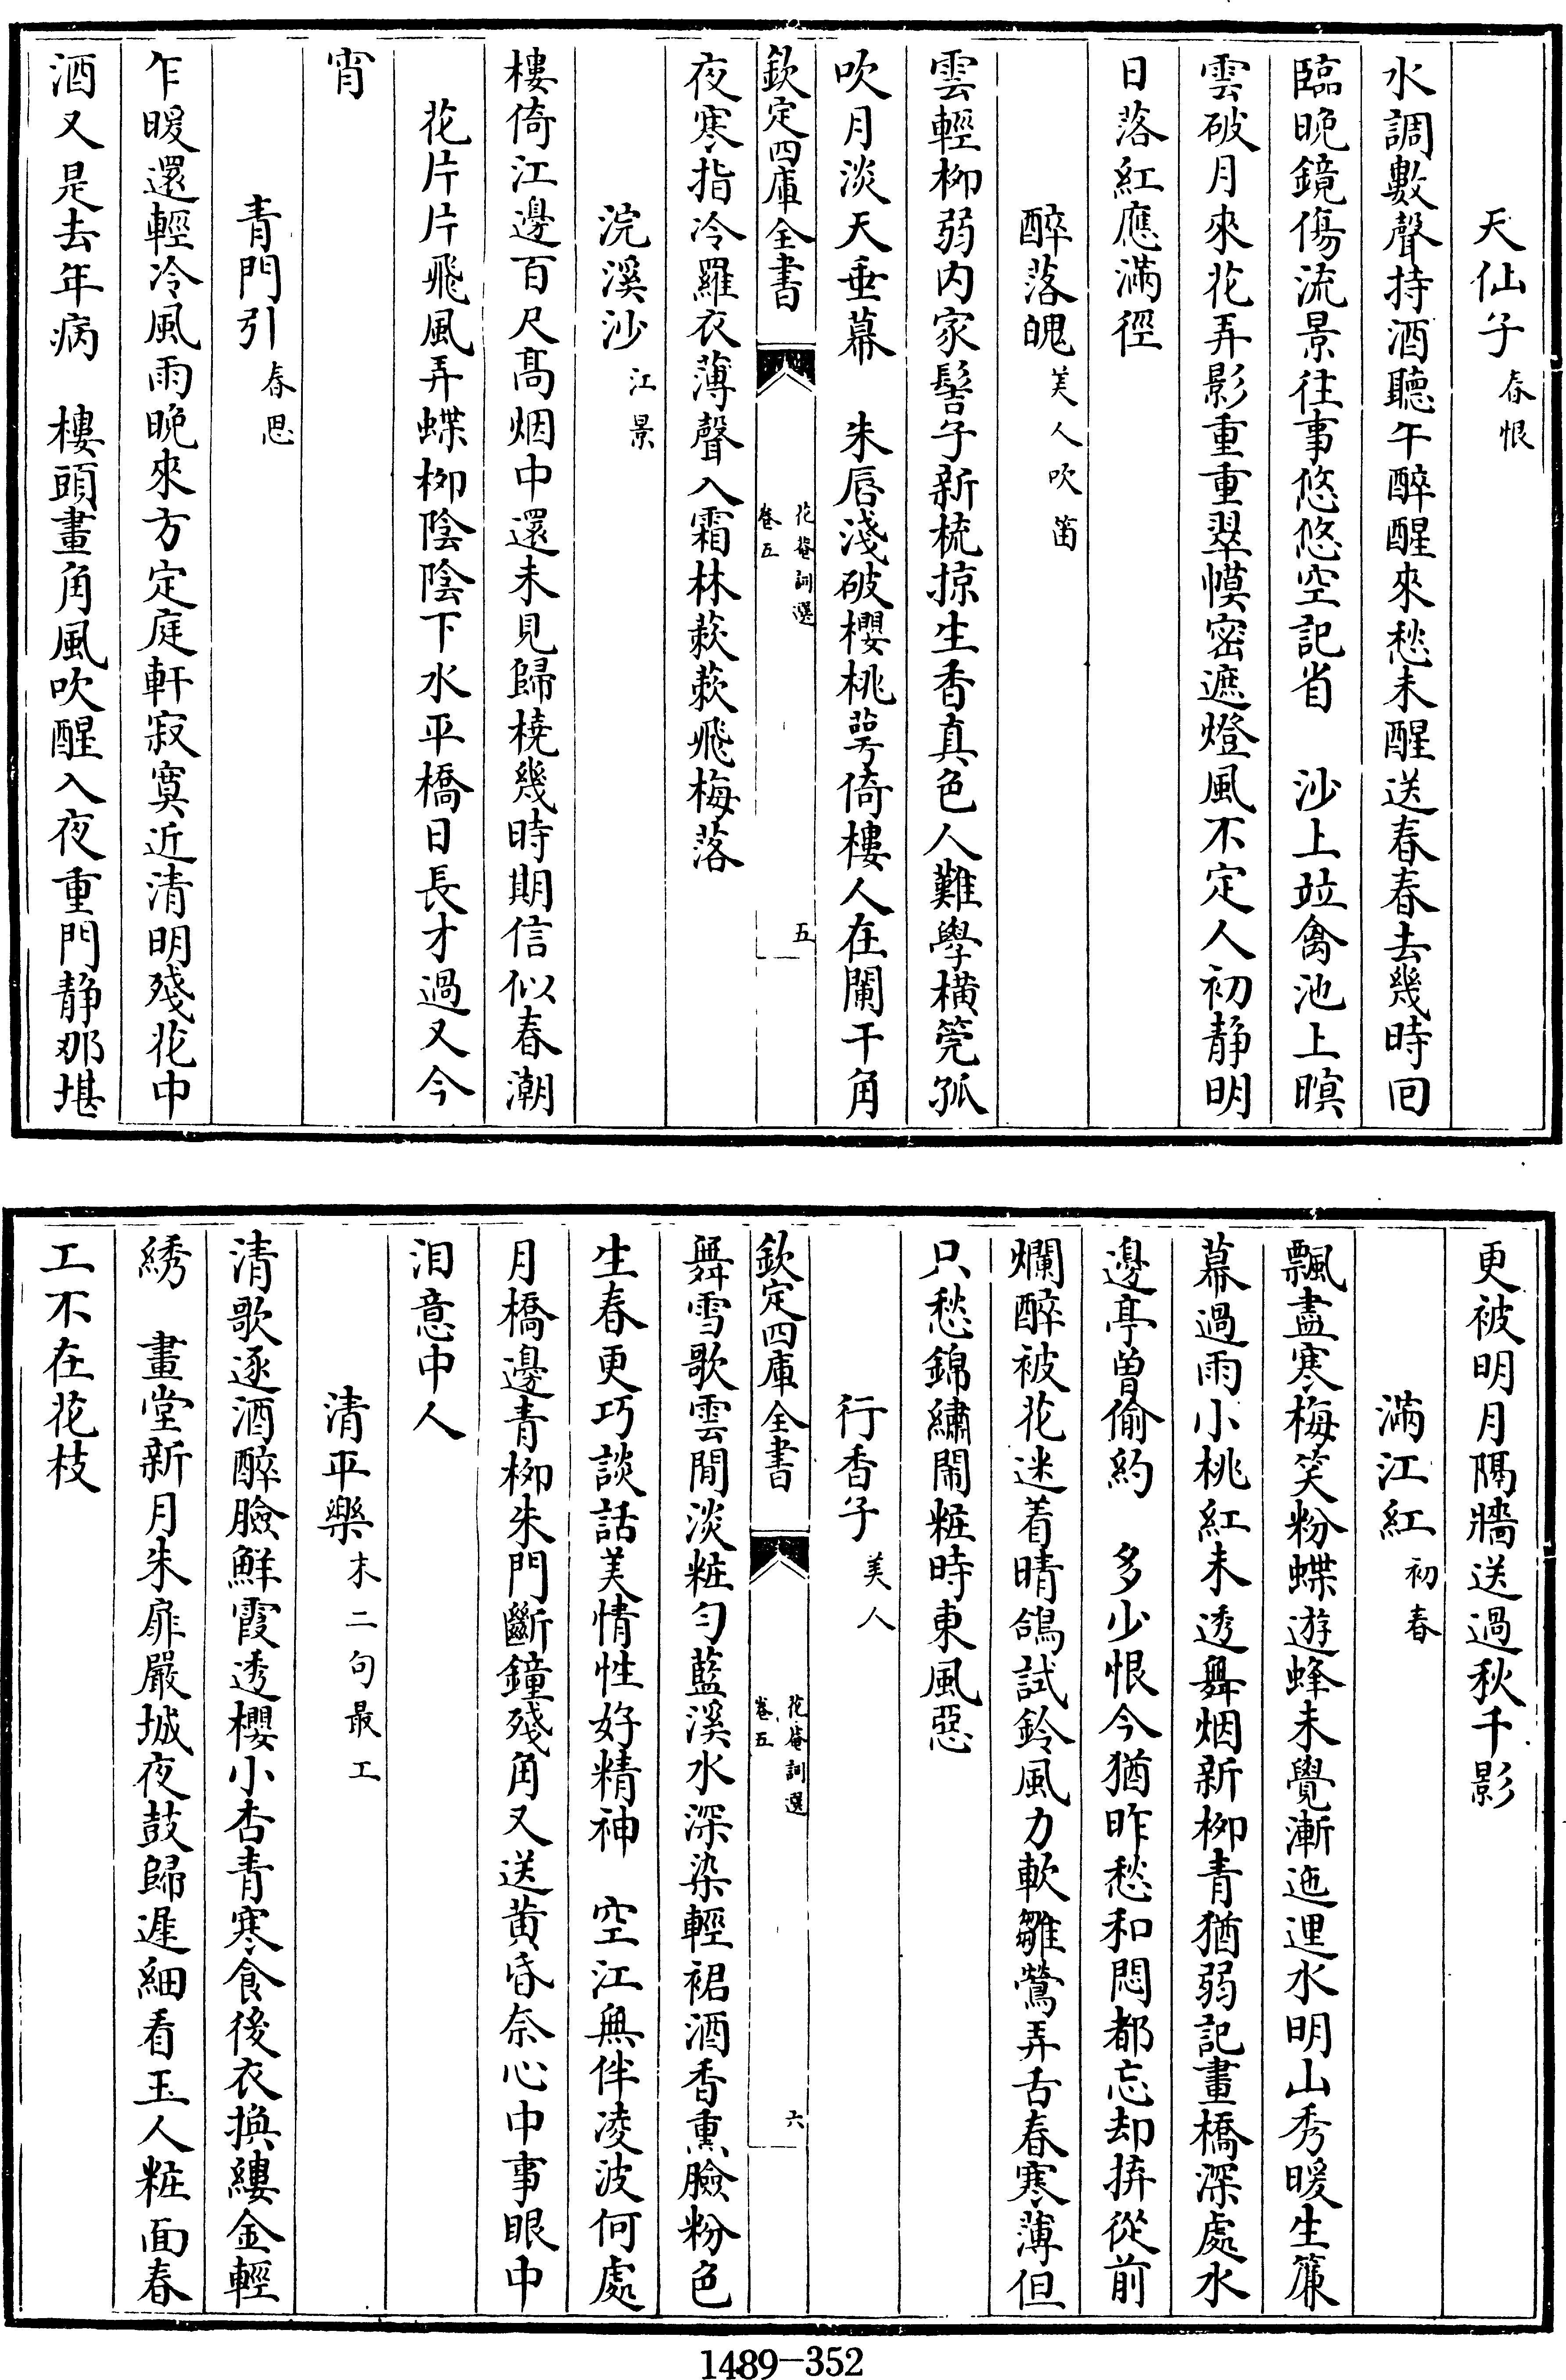 天仙子春恨
水調數聲持酒聽午醉醒來愁未醒送春春去幾時回
臨晚鏡傷流景往事悠悠空記省　沙上竝禽池上暝
雲破月來花弄影重重翠幙密遮燈風不定人初静明
日落紅應滿徑
醉落魄美人吹笛
雲輕栁弱内家髻子新梳掠生香真色人難學横筦孤
吹月淡天垂幕　朱唇淺破櫻桃萼倚樓人在闌干角
欽定四庫全書
花菴詞選
卷五
五
夜寒指冷羅衣薄聲入霜林蔌蔌飛梅落
浣溪沙江景
樓倚江邊百尺髙烟中還未見歸橈幾時期信似春潮
花片片飛風弄蝶栁陰陰下水平橋日長才過又今
宵
青門引春思
乍暖還輕冷風雨晚來方定庭軒寂寞近清明殘花中
酒又是去年病　樓頭畫角風吹醒入夜重門静那堪
更被明月隔牆送過秋千影
滿江紅初春
飄盡寒梅笑粉蝶遊蜂未覺漸迤逕水明山秀暖生簾
幕過雨小桃紅未透舞烟新栁青猶弱記畫橋深處水
邊亭曾偷約　多少恨今猶昨愁和悶都忘却拚從前
爛醉被花迷着晴鴿試鈴風力軟雛鶯弄舌春寒薄但
只愁錦繡閙粧時東風惡
行香子美人
欽定四庫全書
花菴詞選
卷五
六
舞雪歌雲閒淡粧勻藍溪水深染輕裙酒香熏臉粉色
生春更巧談話美情性好精神　空江無伴凌波何處
月橋邊青栁朱門斷鐘殘角又送黄昏奈心中事眼中
泪意中人
清平樂末二句最工
清歌逐酒醉臉鮮霞透櫻小杏青寒食後衣換縷金輕
綉　畫堂新月朱扉嚴城夜鼓歸遲細看玉人粧面春
工不在花枝
1489—352